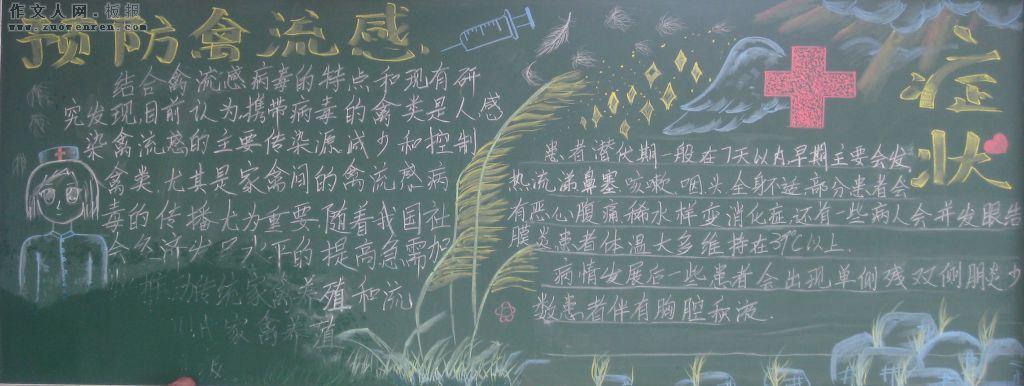 作文人网·板报
www.zuowenren.com
预防禽流感
结合禽流感病毒的特点和现有研
究发现,目前认为,携带病毒的禽类是人感
染禽流感的主要传染源.减少和控制
禽类.尤其是家禽间的禽流感病
毒的传播尤为重要.随着我国社
会经济发展水平的提高急需加
传统家禽养殖和流
家禽养殖
症状
患者潜伏期一般在7天以内早期主要会发
热流涕鼻塞咳嗽.咽头全身不适.部分患者会
有恶心腹痛稀水样变消化症.还有一些病人会并发眼结
膜炎患者体温大多维持在39℃以上.
病情发展后一些患者会出现单侧残双侧肺炎少
数患者伴有胸腔积液.